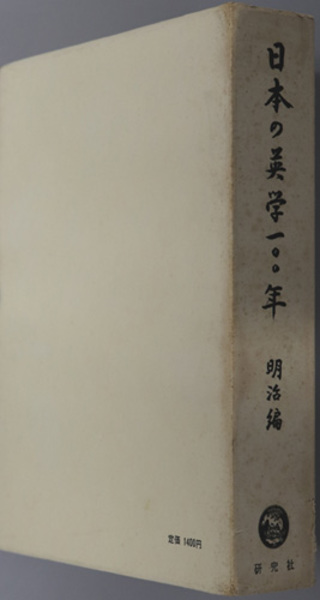 日本の英学一〇〇年
明治編
研究社
定価 1400円